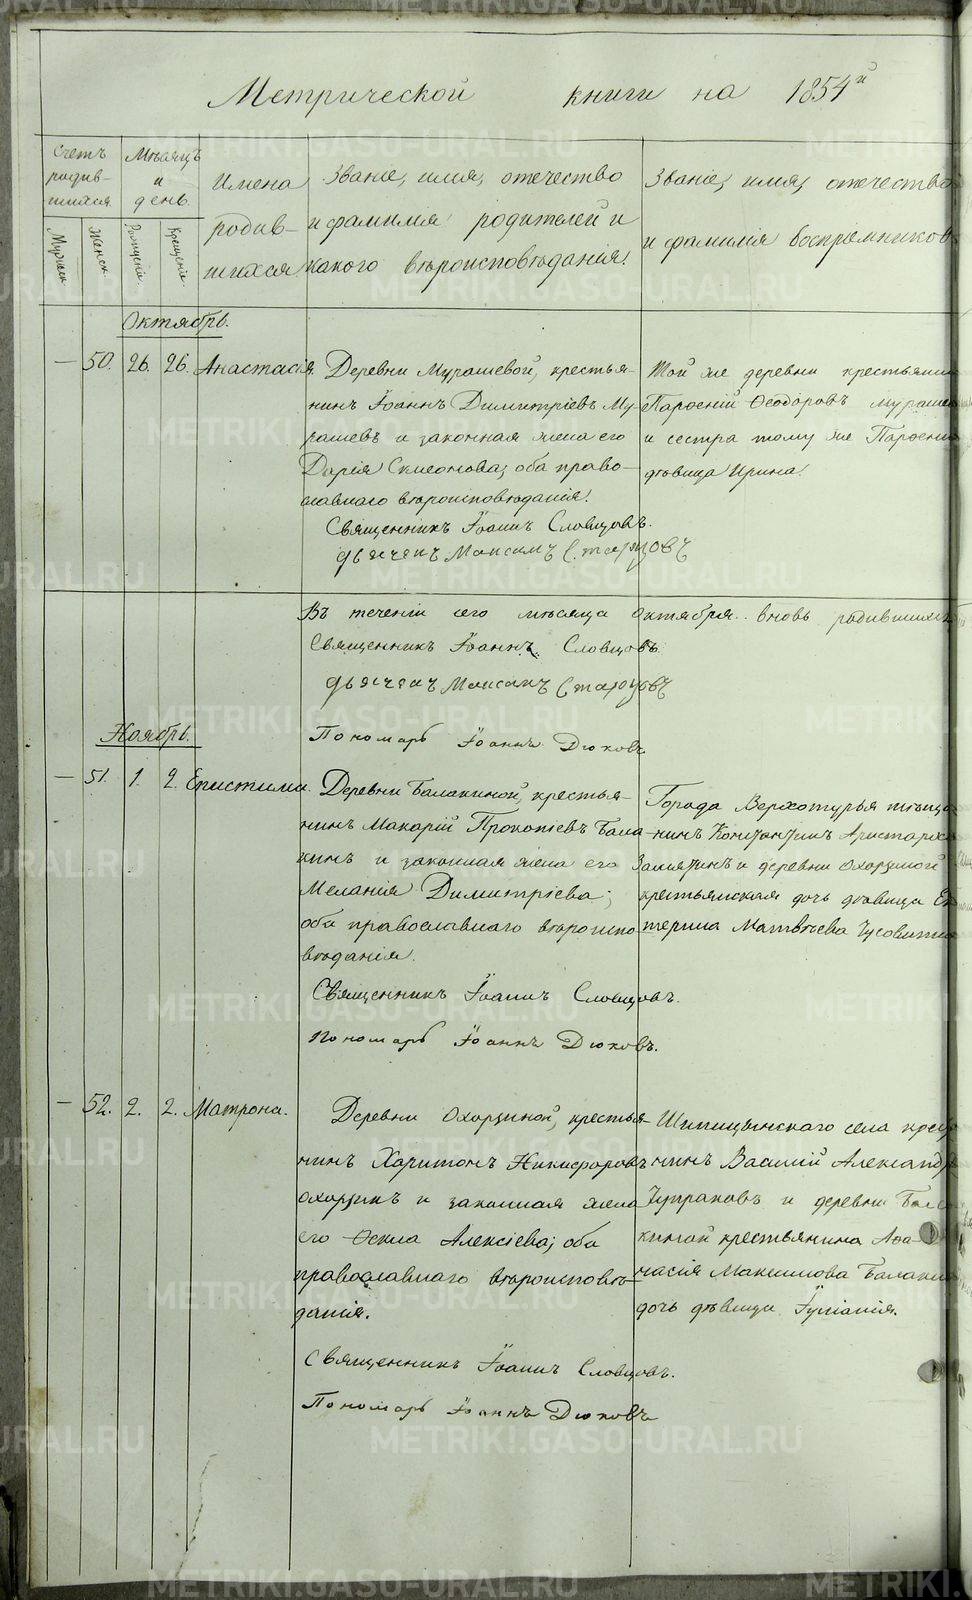 Метрической книги на 1854й
Счетъ родив-шихся
Мѣсяцъ и день.
Имена родив-шихся
Званіе, имя, отечество и фамилія родителей и какого вѣроисповѣданія.
Званіе, имя, отечество и фамилія воспремников
Мужеск.
Женск.
Рожденія
Крещенія
Октябрь.
— 50. 26. 26. Анастасія.
Деревни Мурашевой, крестья-
нинъ Іоаннъ Димитріевъ Му-
рашевъ и законная жена его
Дарія Симеонова; оба право-
славнаго вѣроисповѣданія.
Священникъ Іоаннъ Словцовъ.
дьячекъ Максимъ Старцовъ
Той же деревни крестьянин
Парѳеній Ѳеодоровъ Мураше
и сестра тому же Парѳению
дѣвица Ирина.
Въ теченіи сего мѣсяца Октября вновь родившихся
Священникъ Іоаннъ Словцовъ
дьячекъ Максимъ Старцовъ
Пономарь Іоаннъ Дюковъ
Ноябрь.
— 51. 1. 2. Епистимия.
Деревни Балакиной, крестья-
нинъ Макарій Прокопіевъ Бала-
кинъ и законная жена его
Меланія Димитріева;
оба православнаго вѣроиспо-
вѣданія.
Священникъ Іоаннъ Словцовъ.
Пономарь Іоаннъ Дюковъ.
Города Верхотурья мѣща-
нинъ Константинъ Аристархо
Замятинъ и деревни Охорзиной
крестьянская дочь дѣвица Ек
терина Матвѣева Чусовити
— 52. 2. 2. Матрона.
Деревни Охорзиной, крестья-
нинъ Харитонъ Никифоровъ
Охорзинъ и законная жена
его Ѳекла Алексіева; оба
православнаго вѣроисповѣ-
данія.
Священникъ Іоаннъ Словцовъ.
Пономарь Іоаннъ Дюковъ
Шипицынскаго села крес
нинъ Василій Александр
Чупраковъ и деревни Бала
киной крестьянина Аѳа-
насія Максимова Балаки
дочь дѣвица Іуліанія.
METRIKI.GASO-URAL.RU